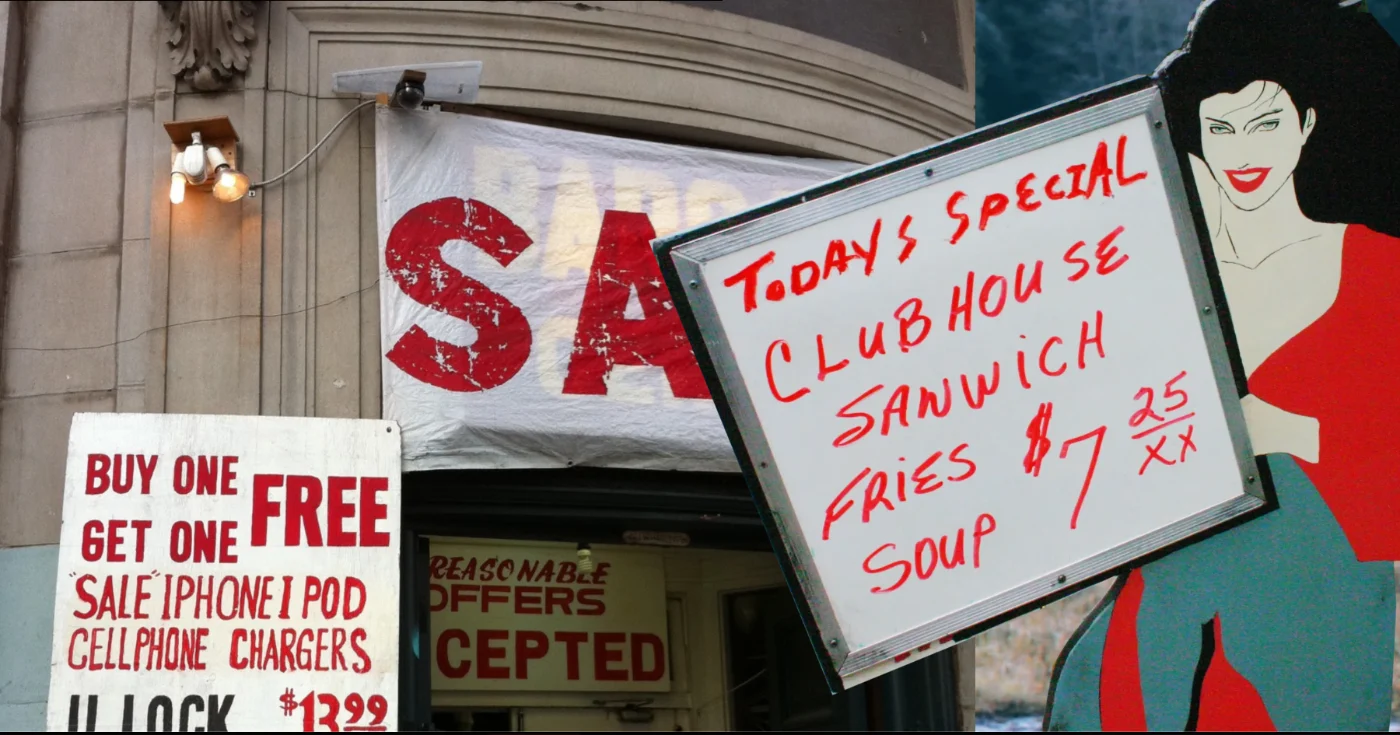 SA
BUY ONE FREE
GET ONE
"SALE" IPHONE I POD
CELLPHONE CHARGERS
U LOCK $13.99
REASONABLE
OFFERS
CEPTED
TODAYS SPECIAL
CLUBHOUSE
SANWICH
FRIES $7 25/XX
SOUP